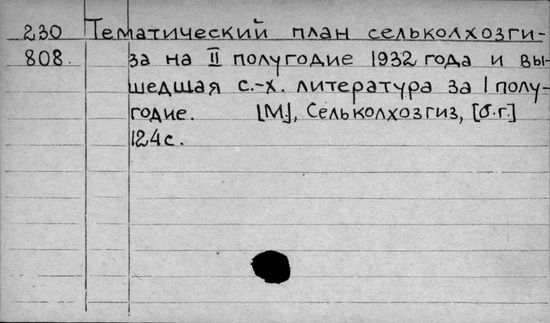 230 Тематический план сельколхозги-
808. за на II полугодие 1932 года и вы-
шедшая с.-х. литература за I полу-
годие. [М.], Сельколхозгиз, [б.г.]
124с.